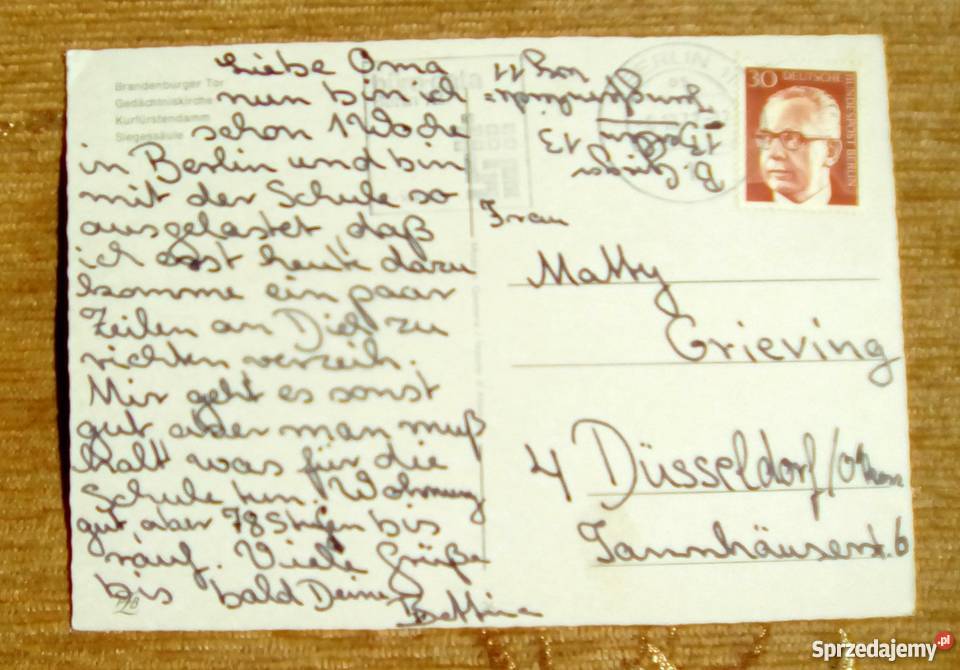 Brandenburger Tor
Gedächtniskirche
Kurfürstendamm
Siegessäule
Liebe Oma
nun bin ich
schon 1 Woche
in Berlin und bin
mit der Schule so
ausgelastet daß
ich erst heute dazu
komme ein paar
Zeilen an Dich zu
richten verzeih.
Mir geht es sonst
gut aber man muß
halt was für die
Schule tun. Wohnung
gut aber 78 Stufen bis
rauf. Viele Grüße
bis bald Deine
Bettina
B.
1 Berlin 13
30 DEUTSCHE BUNDESPOST BERLIN
BERLIN 11
Frau
Matty
Grieving
4 Düsseldorf/
Tannhäuserstr. 6
Sprzedajemy.pl